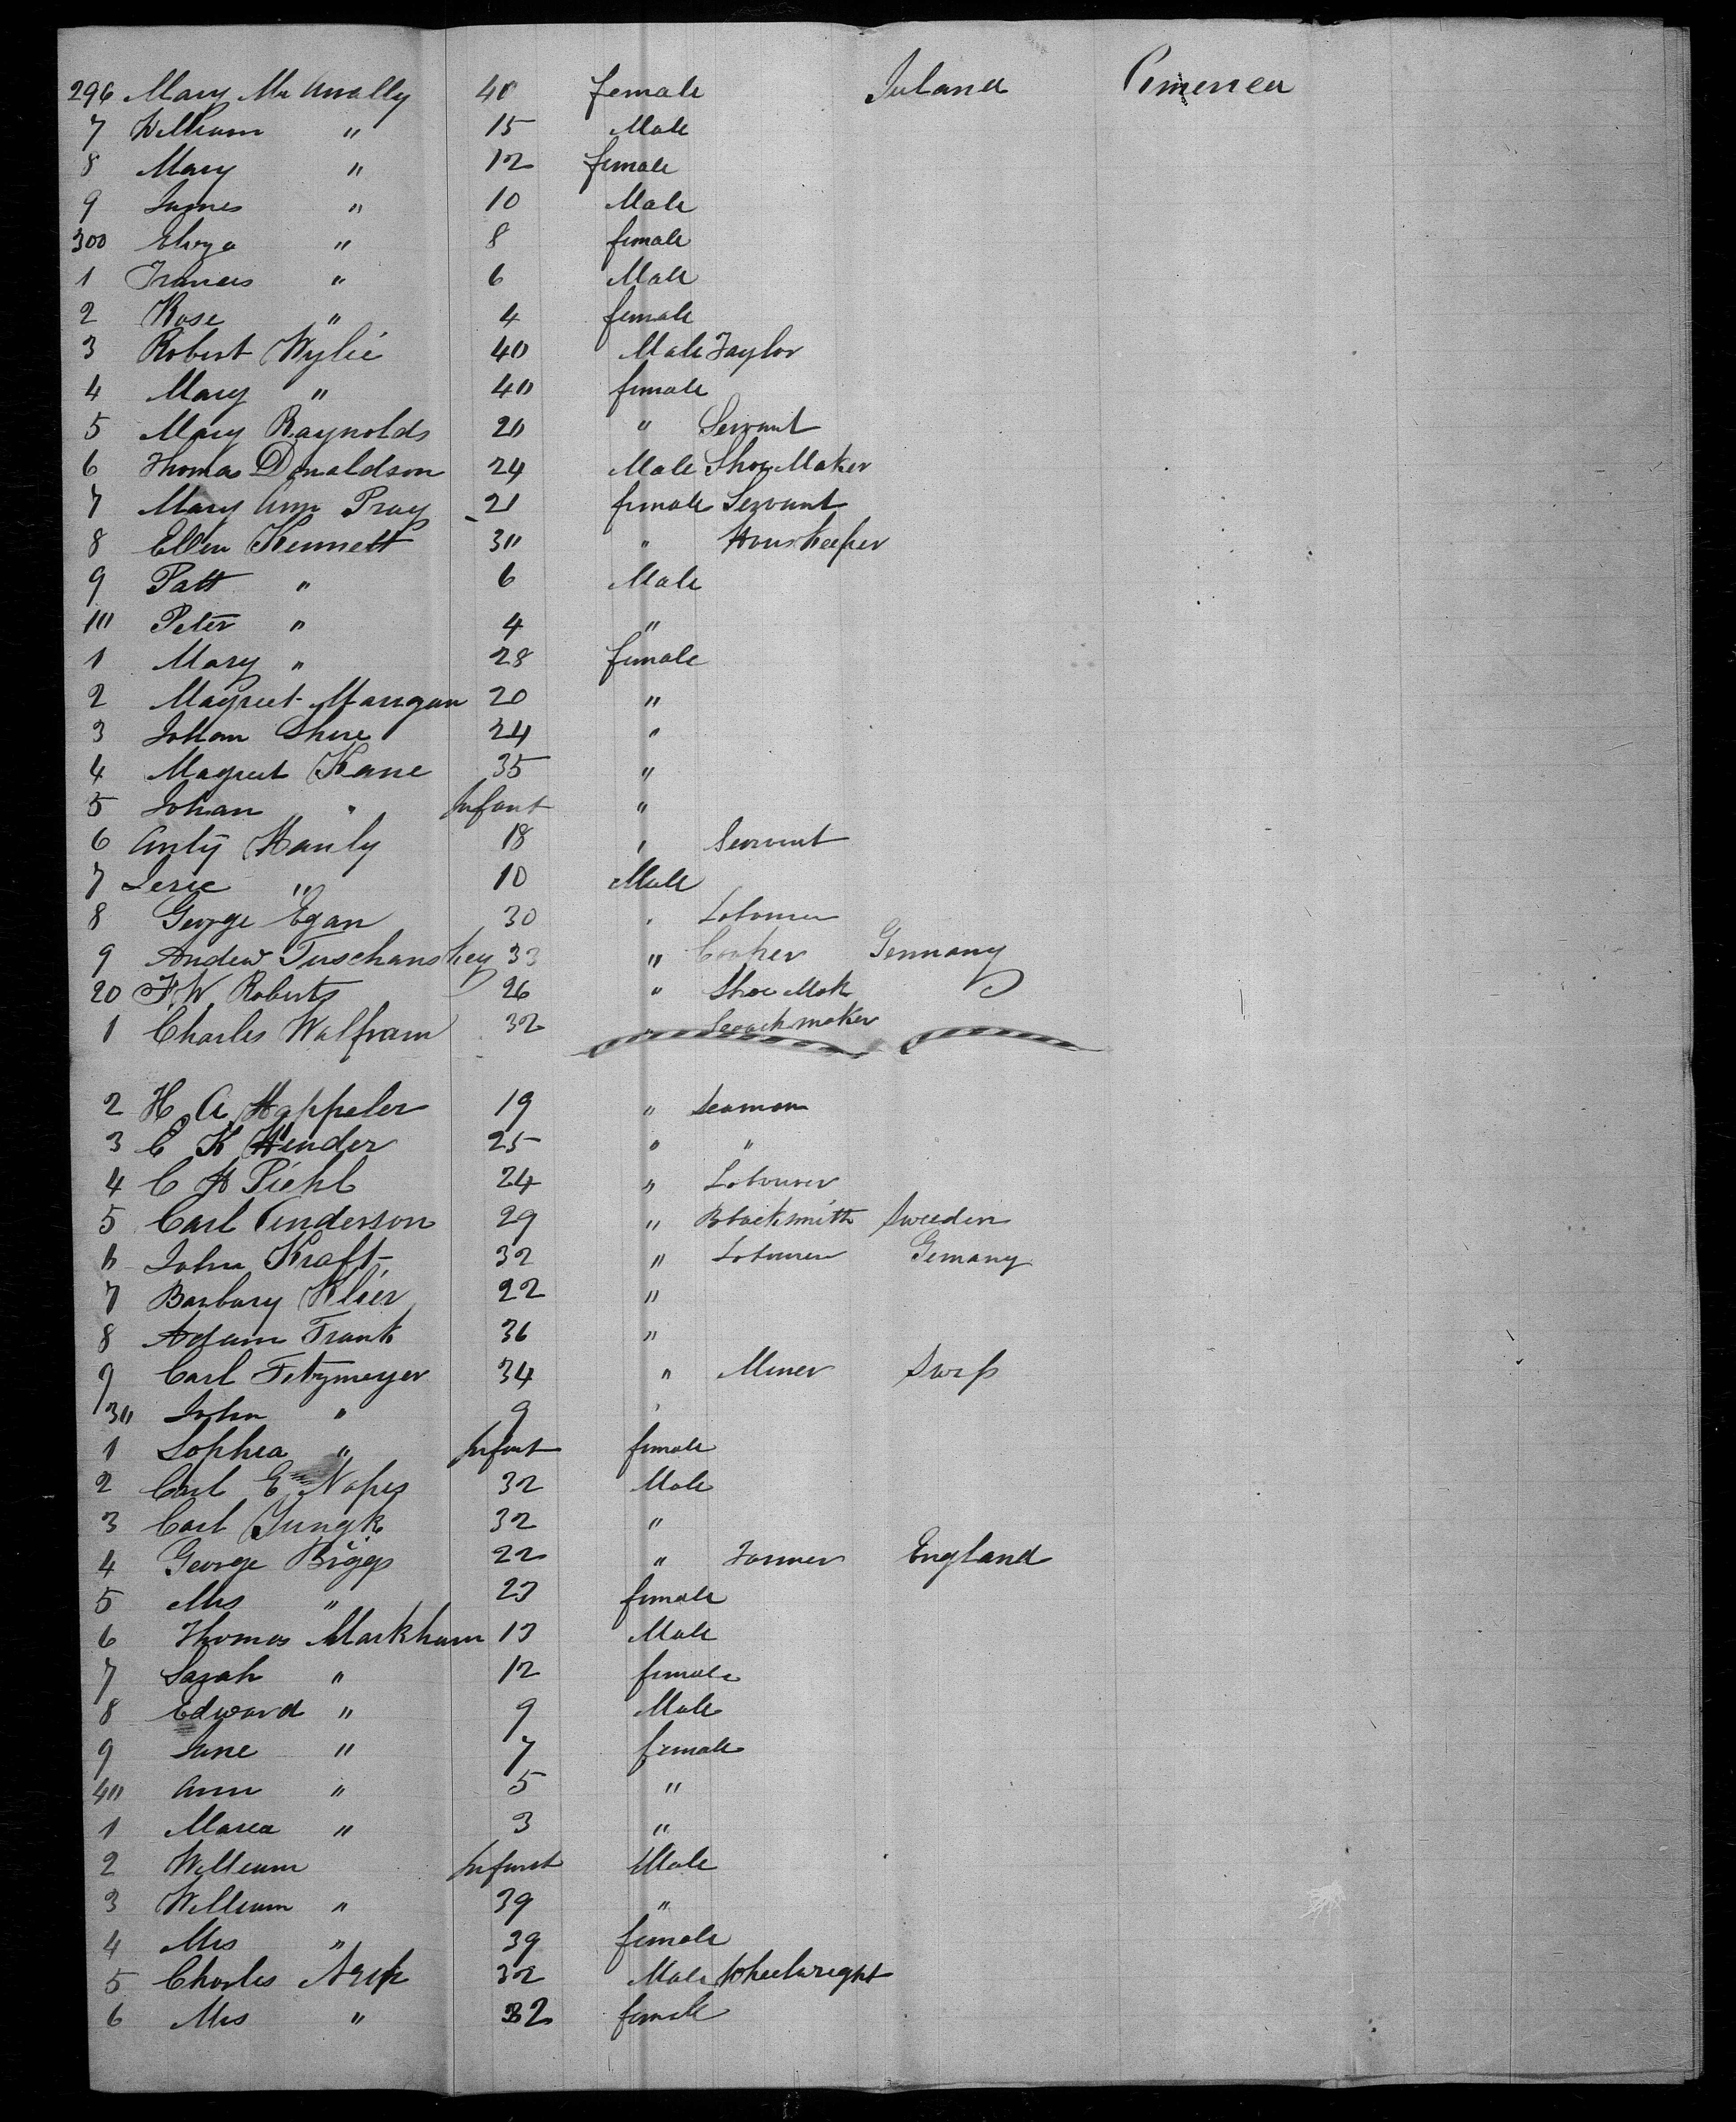 296 Mary Mc Anally 40 female Ireland America
7 William " 15 Male
8 Mary " 12 female
9 James " 10 Male
300 Eliza " 8 female
1 Frances " 6 Male
2 Rose " 4 female
3 Robert Wylie 40 Male Taylor
4 Mary " 40 female
5 Mary Raynolds 20 " Servant
6 Thomas Donaldson 24 Male Shoe Maker
7 Mary Ann Pray 21 female Servant
8 Ellen Kennett 30 " Housekeeper
9 Patt " 6 Male
10 Peter " 4 "
1 Mary " 28 female
2 Magreet Mangan 20 "
3 Johan Shire 24 "
4 Magreet Kane 35 "
5 Johan " Infant "
6 Anty Hanly 18 " Servant
7 " 10 Male
8 George Egan 30 " Labourer
9 Andew Tuschanskey 33 " Cooper Germany
20 F W Roberts 26 " Shoe Mak
1 Charles Walfram 32 "
2 H A Happeler 19 " Seaman
3 C K Hender 25 " "
4 C H Piehl 24 " Labourer
5 Carl Anderson 29 " Blacksmith Sweeden
6 John Kraft 32 " Labourer Gemany
7 Barbary Klier 22 "
8 Adam Frank 36 "
9 Carl Fitzmeyer 34 " Miner Swiss
30 John " 9 "
1 Sophea " Infant female
2 Carl E 32 Male
3 Carl Jungk 32 "
4 George Biggs 22 " Farmer England
5 Mrs " 23 female
6 Thomas Markham 13 Male
7 Sarah " 12 female
8 Edward " 9 Male
9 Jane " 7 female
40 Ann " 5 "
1 Marea " 3 "
2 William Infant Male
3 William " 39 "
4 Mrs " 39 female
5 Charles 32 Male Wheelwright
6 Mrs " 32 female